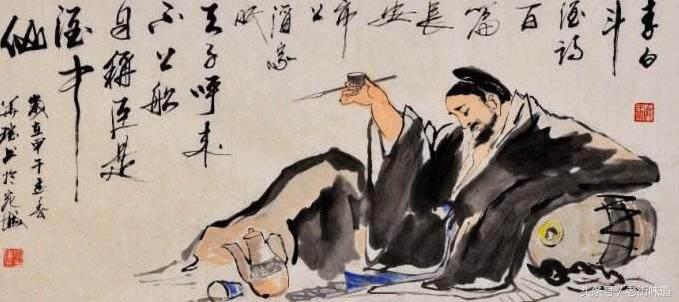 李白
斗
酒诗
百
篇
長
安
市
上
酒家
眠
天子呼来
不上船
自稱臣是
酒中
仙
歲在甲午
於宛城
头条号 / 老街味道